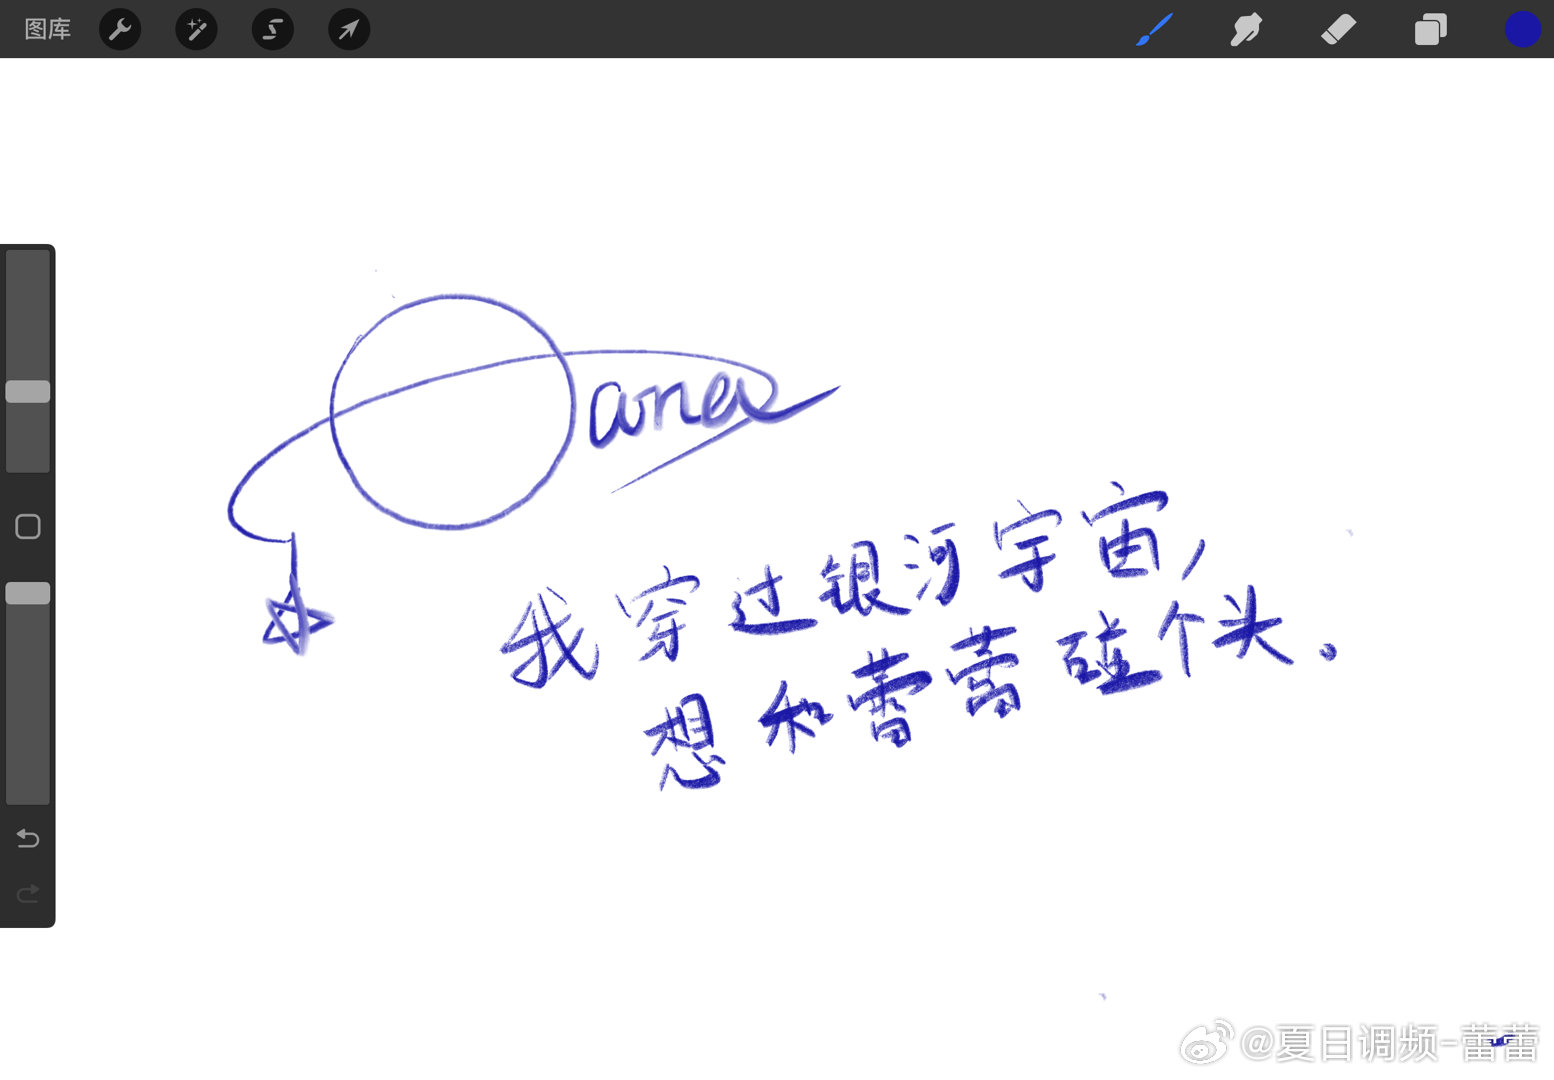 图库
我穿过银河宇宙,
想和蕾蕾碰个头。
@夏日调频-蕾蕾